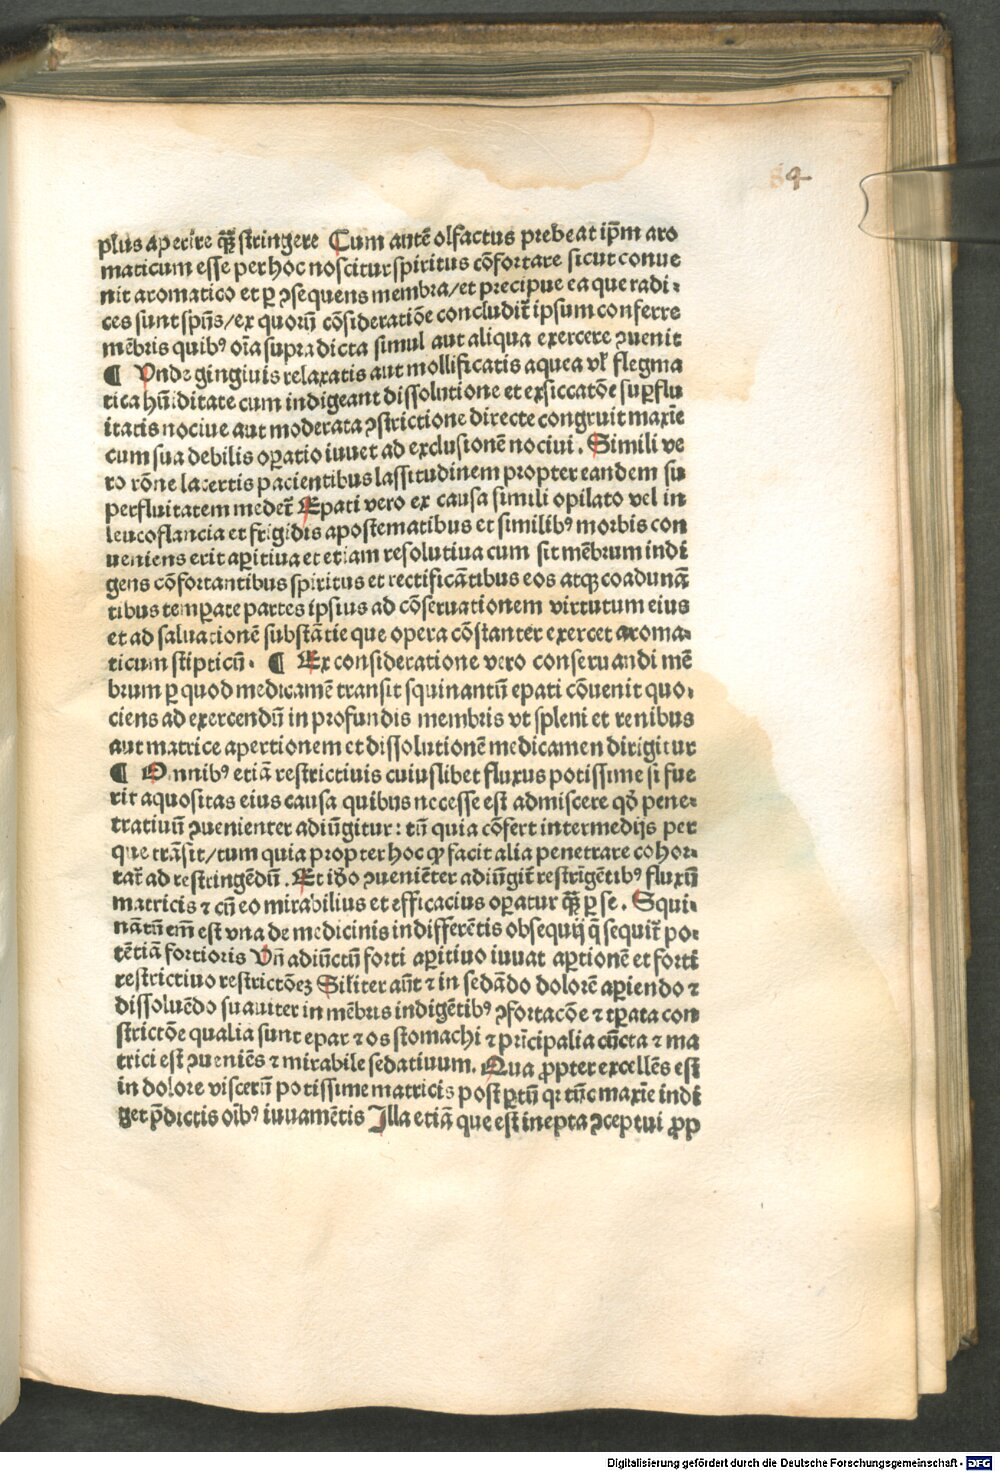 84
plus aperire q̃ʒ stringere Cum autē olfactus prebeat ip̄m aro
maticum esse per hoc noscitur spiritus cōfortare sicut conue
nit aromatico et ꝑ ꝯsequens membra/et precipue ea que radi⸗
ces sunt spūs/ex quorū cōsideratiōe concludit᷑ ipsum conferre
mēbris quibꝰ oīa supradicta simul aut aliqua exercere ꝯuenit
¶ Vnde gingiuis relaxatis aut mollificatis aquea vl᷑ flegma
tica hūiditate cum indigeant dissolutione et exsiccatōe suꝑflu
itatis nociue aut moderata ꝯstrictione directe congruit maxīe
cum sua debilis oꝑatio iuuet ad exclusionē nociui. Simili ve
ro rōne lacertis pacientibus lassitudinem propter eandem su
perfluitatem medet᷑ Epati vero ex causa simili opilato vel in
leucoflancia et frigidis apostematibus et similibꝰ morbis con
ueniens erit aꝑitiua et etiam resolutiua cum sit mēbrum indi
gens cōfortantibus spiritus et rectificātibus eos atqꝫ coadunā
tibus temꝑate partes ipsius ad cōseruationem virtutum eius
et ad saluationē substātie que opera cōstanter exercet aroma⸗
ticum stipticū. ¶ Ex consideratione vero conseruandi mē
brum ꝑ quod medicamē transit squinantū epati cōuenit quo⸗
ciens ad exercendū in profundis membris vt spleni et renibus
aut matrice apertionem et dissolutionē medicamen dirigitur
¶ Omnibꝰ etiā restrictiuis cuiuslibet fluxus potissime si fue
rit aquositas eius causa quibus necesse est admiscere qd̄ pene⸗
tratiuū ꝯuenienter adiūgitur: tū quia cōfert intermedijs per
que trāsit/tum quia propter hoc ꝙ facit alia penetrare cohor⸗
tat᷑ ad restringēdū. Et iđo ꝯueniēter adiūgit᷑ restrīgētibꝰ fluxū
matricis ⁊ cū eo mirabilius et efficacius oꝑatur q̃ʒ ꝑ se. Squi⸗
nātū em̄ est vna de medicinis indifferētis obsequij q̄ sequit᷑ po⸗
tētiā fortioris Vn̄ adiūctū forti aꝑitiuo iuuat aꝑtionē et forti
restrictiuo restrictōeʒ Siliter aūt ⁊ in sedādo dolorē aꝑiendo ⁊
dissoluēdo suauiter in mēbris indigētibꝰ ꝯfortacōe ⁊ tꝑata con
strictōe qualia sunt epar ⁊ os stomachi ⁊ prīcipalia cūcta ⁊ ma
trici est ꝯueniēs ⁊ mirabile sedatiuum. Qua ꝓpter excellēs est
in dolore viscerū potissime matricis post ꝑtū qr tūc maxīe indi
get p̄dictis oībꝰ iuuamētis Illa etiā que est inepta ꝯceptui ꝓp
Digitalisierung gefördert durch die Deutsche Forschungsgemeinschaft - DFG